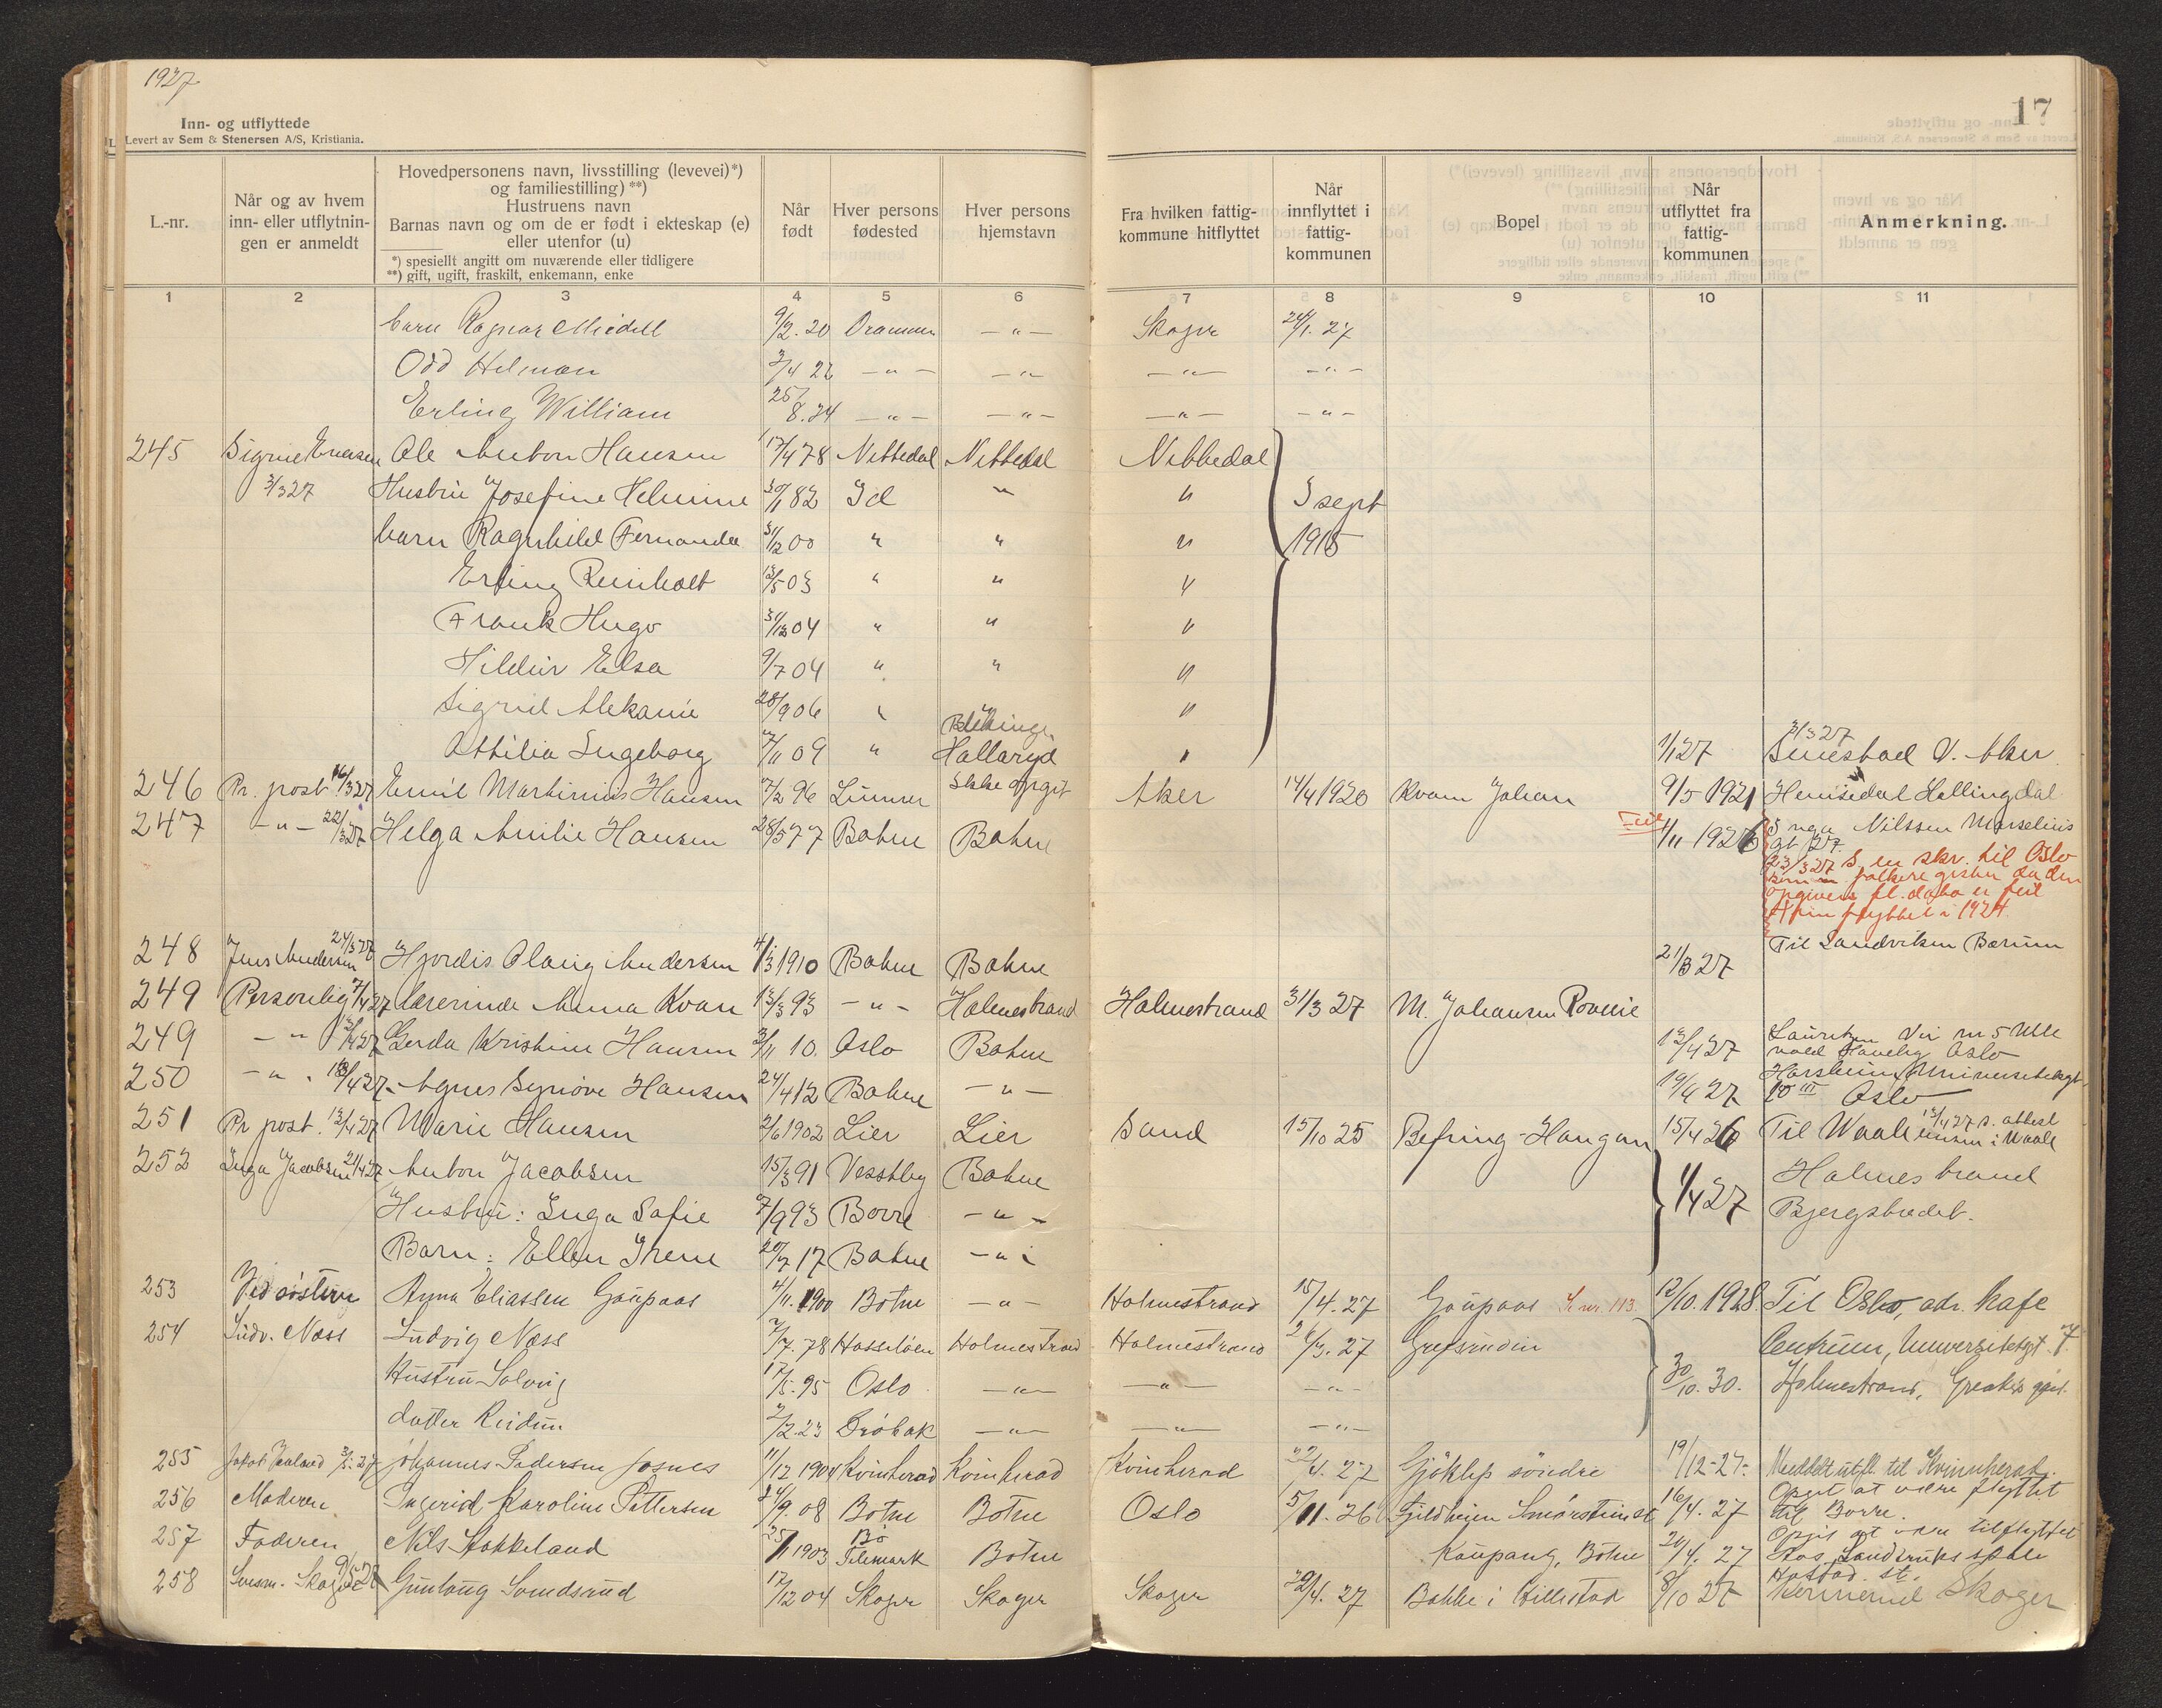 1927
17
Inn- og utflyttede
Levert av Sem & Stenersen A/S, Kristiania.
L.-nr.
Når og av hvem inn- eller utflytnin- gen er anmeldt
Hovedpersonens navn, livsstilling (levevei)*) og familiestilling) **)
Hustruens navn
Barnas navn og om de er født i ekteskap (e) eller utenfor (u)
*) spesiellt angitt om nuværende eller tidligere
**) gift, ugift, fraskilt, enkemann, enke
Når født
Hver persons fødested
Hver persons hjemstavn
Fra hvilken fattig- kommune hitflyttet
Når innflyttet i fattig- kommunen
Bopel
Når utflyttet fra fattig- kommunen
Anmerkning.
1 2 3 4 5 6 7 8 9 10 11
barn Ragnar Meidell 9/2. 20 Drammen — " — Skoger 24/1. 27
Odd Helman 2/4 22 — " — — " — — " — — " —
Erling William 25/8. 24 — " — — " — — " — — " —
245 Ole Anton Hansen 17/4 78 Nittedal Nittedal Nittedal
3/3 27 Hustru Josefine Helmine 30/1 82 Id " " 3 sept
barn Ragnhild Fernanda 31/2 00 " " " 1915
Erling Reinholt 13/5 03 " " "
Frank Hugo 31/12 04 " " "
Hildur Elsa 9/7 04 " " "
Sigrid 28/9 06 " " "
Ottilia Ingeborg 7/11 09 " Blekinge Hallaryd " 1/1 27 3/3 27 V. Aker
246 Pr. post 16/3 27 Emil Martinius Hansen 7/2 96 Lunner Ikke opgit Aker 14/4 1920 Kvam Johan 9/5 1921 Hemsedal Hallingdal
247 — " — 22/3 27 Helga Amilie Hansen 28/5 77 Botne Botne 1/11 1926 Nilssen Marselius gt 27.
23/3 27 S. en skr. til Oslo
folkeregister da den
opgivne fl. dato er feil
flyttet i 1924.
248 Jens Andersen 24/3 27 Hjordis Olaug Andersen 4/3 1910 Botne Botne 21/3 27 Til Sandviken Bærum
249 Personlig 7/4 27 Lærerinde Anna Kvan 13/3 93 — " — Holmestrand Holmestrand 31/3 27 M. Johansen
249 — " — Gerda Kristine Hansen 3/11 10. Oslo Botne 13/4 27 Oslo
250 — " — 13/4 27 Agnes Synøve Hansen 24/4 12 Botne — " — 19/4 27 10 III Oslo
251 Pr post. 13/4 27 Marie Hansen 2/6 1902 Lier Lier Sand 15/10 25 Befring-Haugan 15/4 26 Til Waale 13/4 27 s. attest i Waale
252 Inga Jacobsen 21/4 27 Anton Jacobsen 15/3 91 Vestby Botne 1/4 27 Holmestrand
Hustru: Inga Sofie 7/9 93 Borre — " — Bjergstredet.
Barn: Ellen Irene 20/7 17 Botne — " —
253 Ved søsteren Anna Eliassen Gaupaas 4/11. 1900 Botne — " — Holmestrand 15/4. 27 Gaupaas 12/10. 1928 Til Oslo, adr. Kafe
254 Ludv. Næss Ludvig Næss 7/7. 78 Holmestrand Holmestrand 26/3. 27 Centrum, Universitetsgt. 7
Hustru Solveig 17/5. 95 Oslo — " — — " — — " — 30/10. 30. Holmestrand,
datter Reidun 2/2. 23 Drøbak — " — — " — — " —
255 Johannes Pedersen 11/12 1904 Kvinherad Kvinherad Kvinherad 22/4. 27 Gjøklep søndre 19/12-27. Meddelt utfl. til Kvinnherad.
256 Moderen Ingerid Karoline Pettersen 24/9. 08 Botne Botne Oslo 5/11. 26 16/4. 27 Opgit at være flyttet til Borre.
257 Faderen Nils Stokkeland 25/11 1903 Bø Telemark Botne Kaupang, Botne 20/4. 27 Opgit at være tilflyttet Aas Landbruks
258 Gunlaug Sundsrud 17/12 04 Skoger Skoger Skoger 29/4. 27 Bakke i Hillestad 8/10 27 Skoger